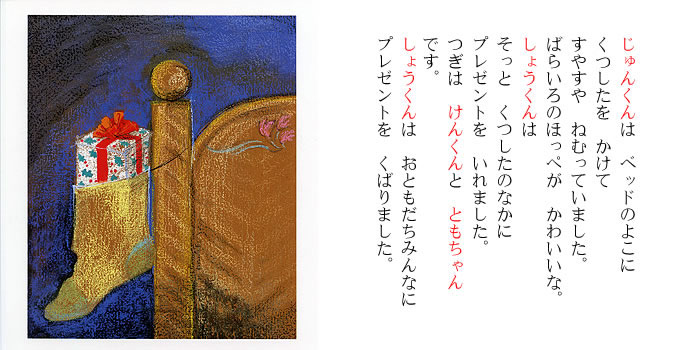 じゅんくんは　ベッドのよこに
くつしたを　かけて
すやすや　ねむっていました。
ばらいろのほっぺが　かわいいな。
しょうくんは
そっと　くつしたのなかに
プレゼントを　いれました。
つぎは　けんくんと　ともちゃん
です。
しょうくんは　おともだちみんなに
プレゼントを　くばりました。